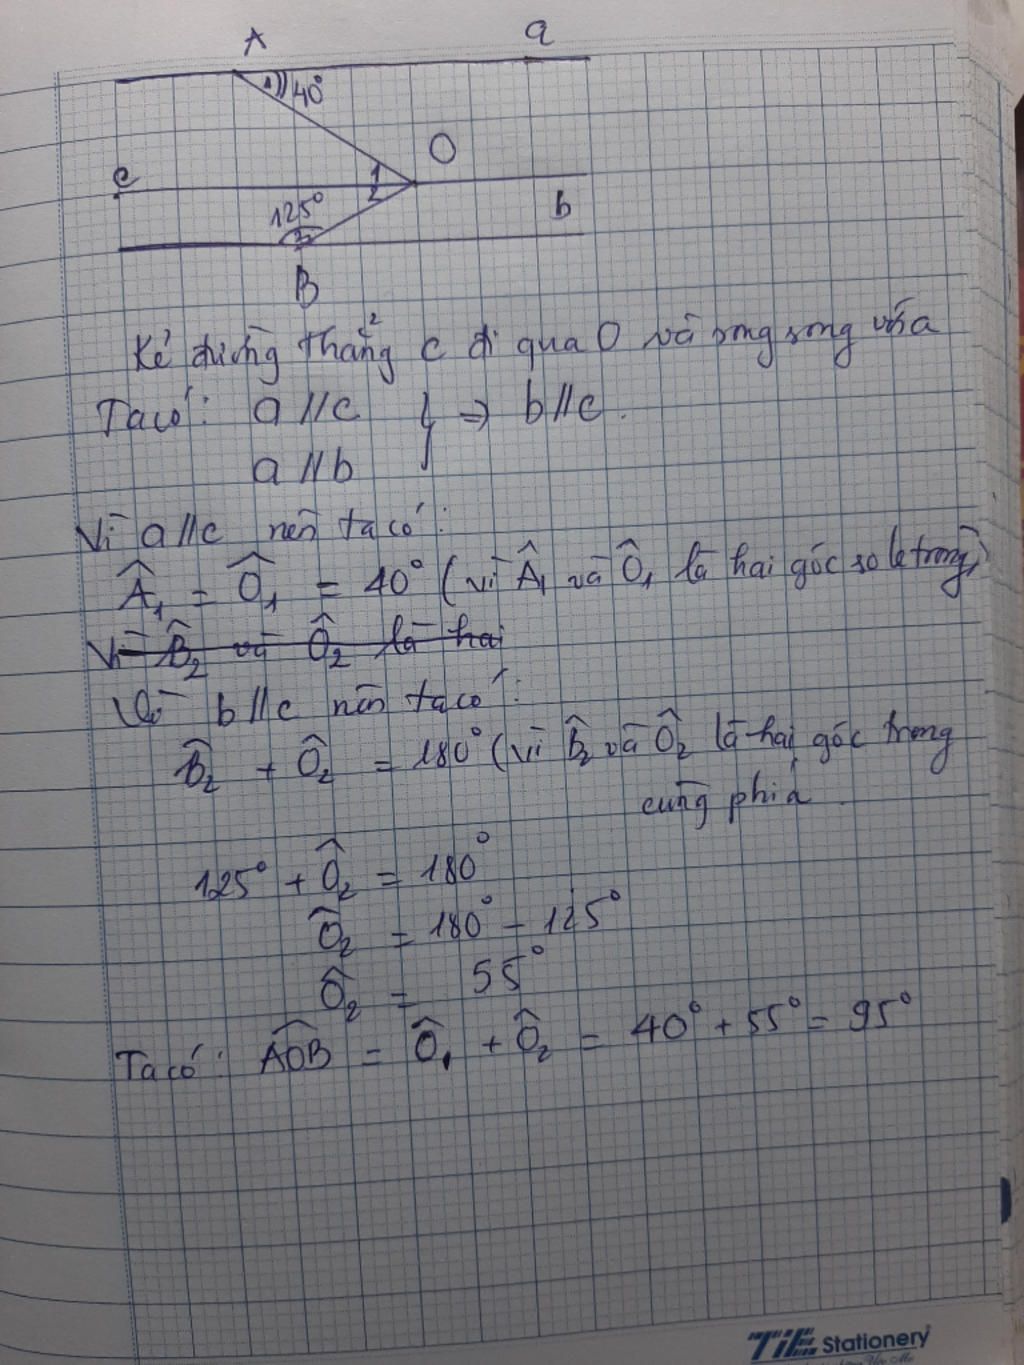 A
a
1
40°
O
c
1
2
125°
b
2
B
Kẻ đường thẳng c đi qua O và song song với a
Ta có: a // c } => b // c.
a // b
Vì a // c nên ta có:
Â₁ = Ô₁ = 40° (vì Â₁ và Ô₁ là hai góc so le trong)
Vì B̂₂ và Ô₂ là hai
Vì b // c nên ta có:
B̂₂ + Ô₂ = 180° (vì B̂₂ và Ô₂ là hai góc trong
cùng phía
125° + Ô₂ = 180°
Ô₂ = 180° - 125°
Ô₂ = 55°
Ta có: AOB = Ô₁ + Ô₂ = 40° + 55° = 95°
TiE Stationery